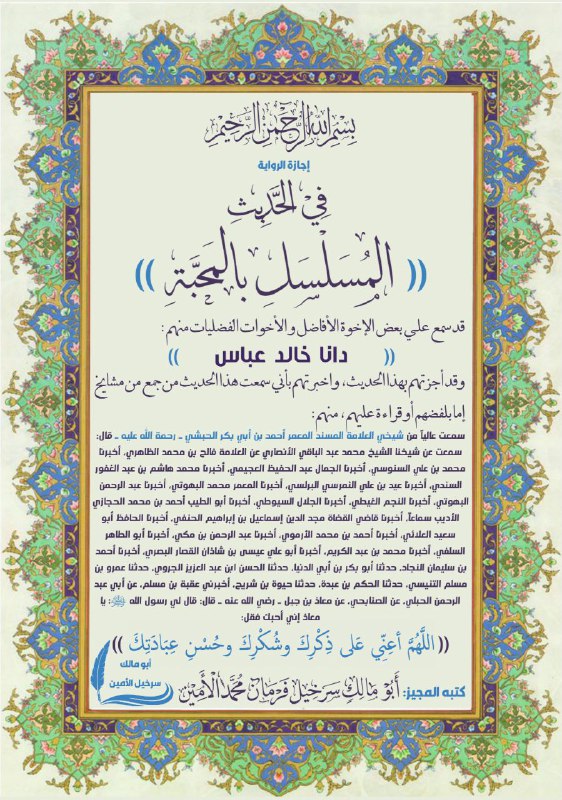 بِسْمِ اللَّهِ الرَّحْمَنِ الرَّحِيمِ
اجازة الرواية
فِي الحَدِيثِ
(( المُسَلْسَلِ بِالمَحَبَّةِ ))
قد سمع علي بعض الإخوة الأفاضل والأخوات الفضليات منهم:
(( دانا خالد عباس ))
وقد أجزتهم بهذا الحديث، واخبرتهم بأني سمعت هذا الحديث من جمع من مشايخ
إما بلفضهم أو قراءة عليهم، منهم:
سمعت عالياً من شيخي العلامة المسند المعمر أحمد بن أبي بكر الحبشي ـ رحمة الله عليه ـ قال:
سمعت عن شيخنا الشيخ محمد عبد الباقي الأنصاري عن العلامة فالح بن محمد الظاهري، أخبرنا
محمد بن علي السنوسي، أخبرنا الجمال عبد الحفيظ العجيمي، أخبرنا محمد هاشم بن عبد الغفور
السندي، أخبرنا عيد بن علي النمرسي البرلسي، أخبرنا المعمر محمد البهوتي، أخبرنا عبد الرحمن
البهوتي، أخبرنا النجم الغيطي، أخبرنا الجلال السيوطي، أخبرنا أبو الطيب أحمد بن محمد الحجازي
الأديب سماعاً، أخبرنا قاضي القضاة مجد الدين إسماعيل بن إبراهيم الحنفي، أخبرنا الحافظ أبو
سعيد العلائي، أخبرنا أحمد بن محمد الأرموي، أخبرنا عبد الرحمن بن مكي، أخبرنا أبو الطاهر
السلفي، أخبرنا محمد بن عبد الكريم، أخبرنا أبو علي عيسى بن شاذان القصار البصري، أخبرنا أحمد
بن سليمان النجاد، حدثنا أبو بكر بن أبي الدنيا، حدثنا الحسن ابن عبد العزيز الجروي، حدثنا عمرو بن
مسلم التنيسي، حدثنا الحكم بن عبدة، حدثنا حيوة بن شريح، أخبرني عقبة بن مسلم، عن أبي عبد
الرحمن الحبلي، عن الصنابحي، عن معاذ بن جبل ـ رضي الله عنه ـ قال: قال لي رسول الله ﷺ: يا
معاذ إني أحبك فقل:
(( اللَّهُمَّ أَعِنِّي عَلَى ذِكْرِكَ وشُكْرِكَ وحُسْنِ عِبَادَتِكَ ))
كتبه المجيز: أَبُو مَالِكٍ سَرْخِيل فَرْمَان مُحَمَّد الأَمِين
أبو مالك
سرخيل الأمين